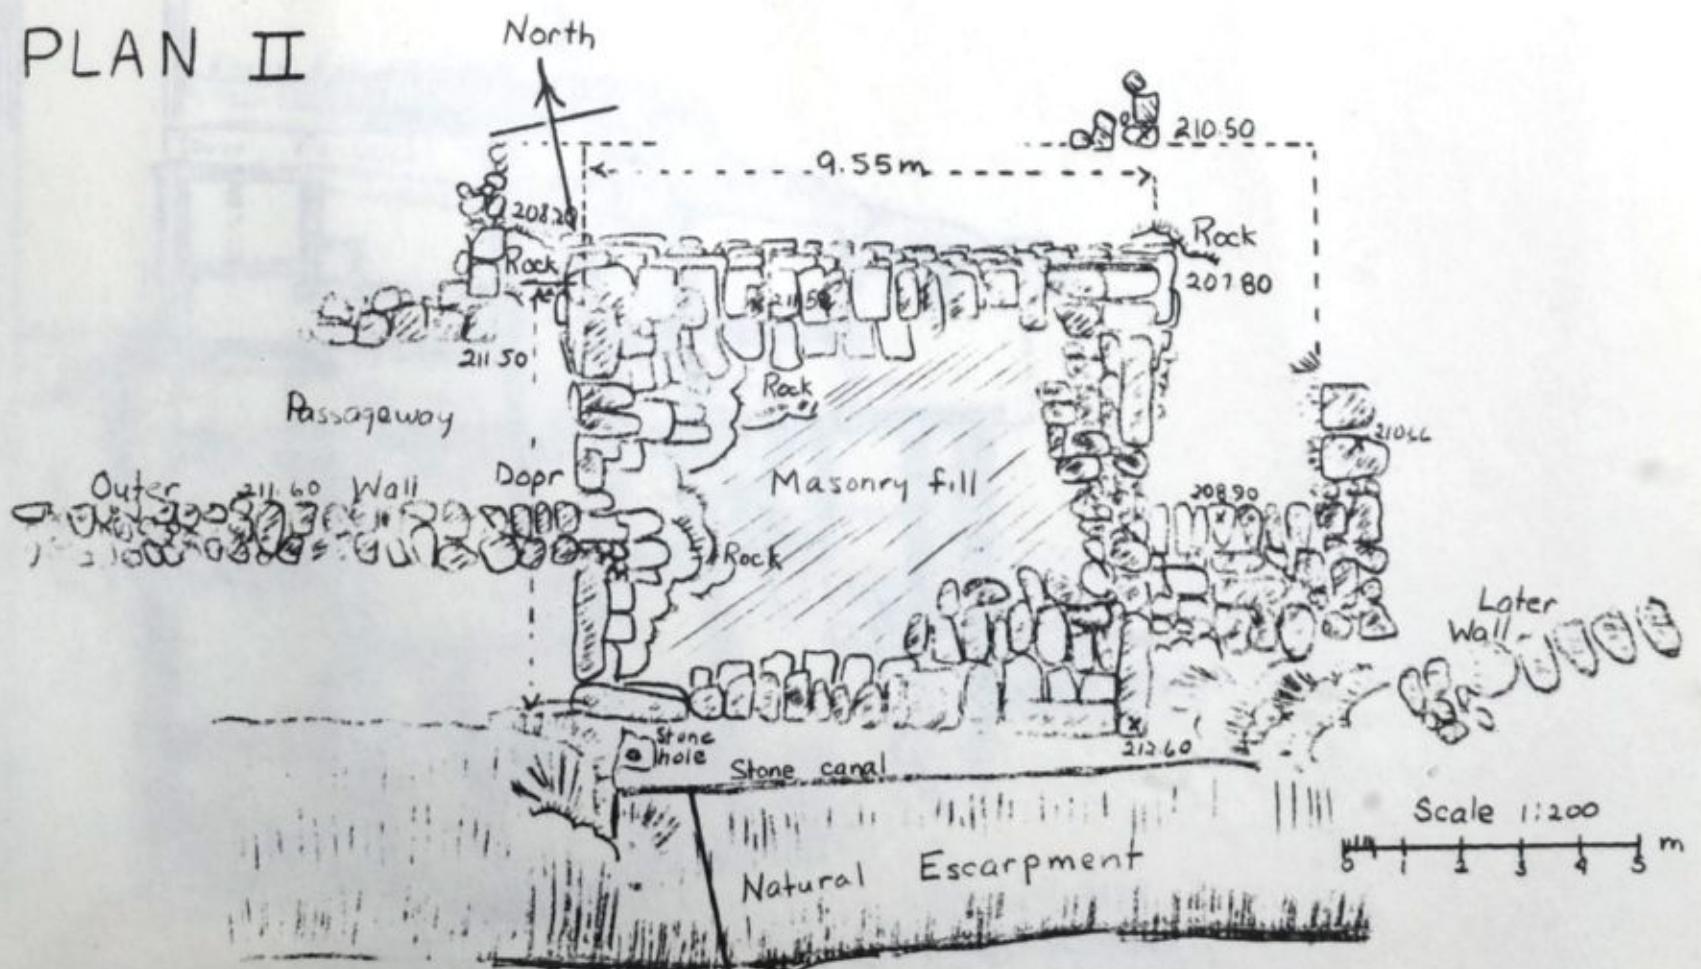 PLAN II
North
210.50
9.55m
208.20
Rock
Rock
207.80
211.50
Rock
Passageway
Outer 211.60 Wall
Door
Masonry fill
208.90
Rock
Later
Wall
Stone
hole
Stone canal
212.60
Scale 1:200
0 1 2 3 4 5 m
Natural Escarpment